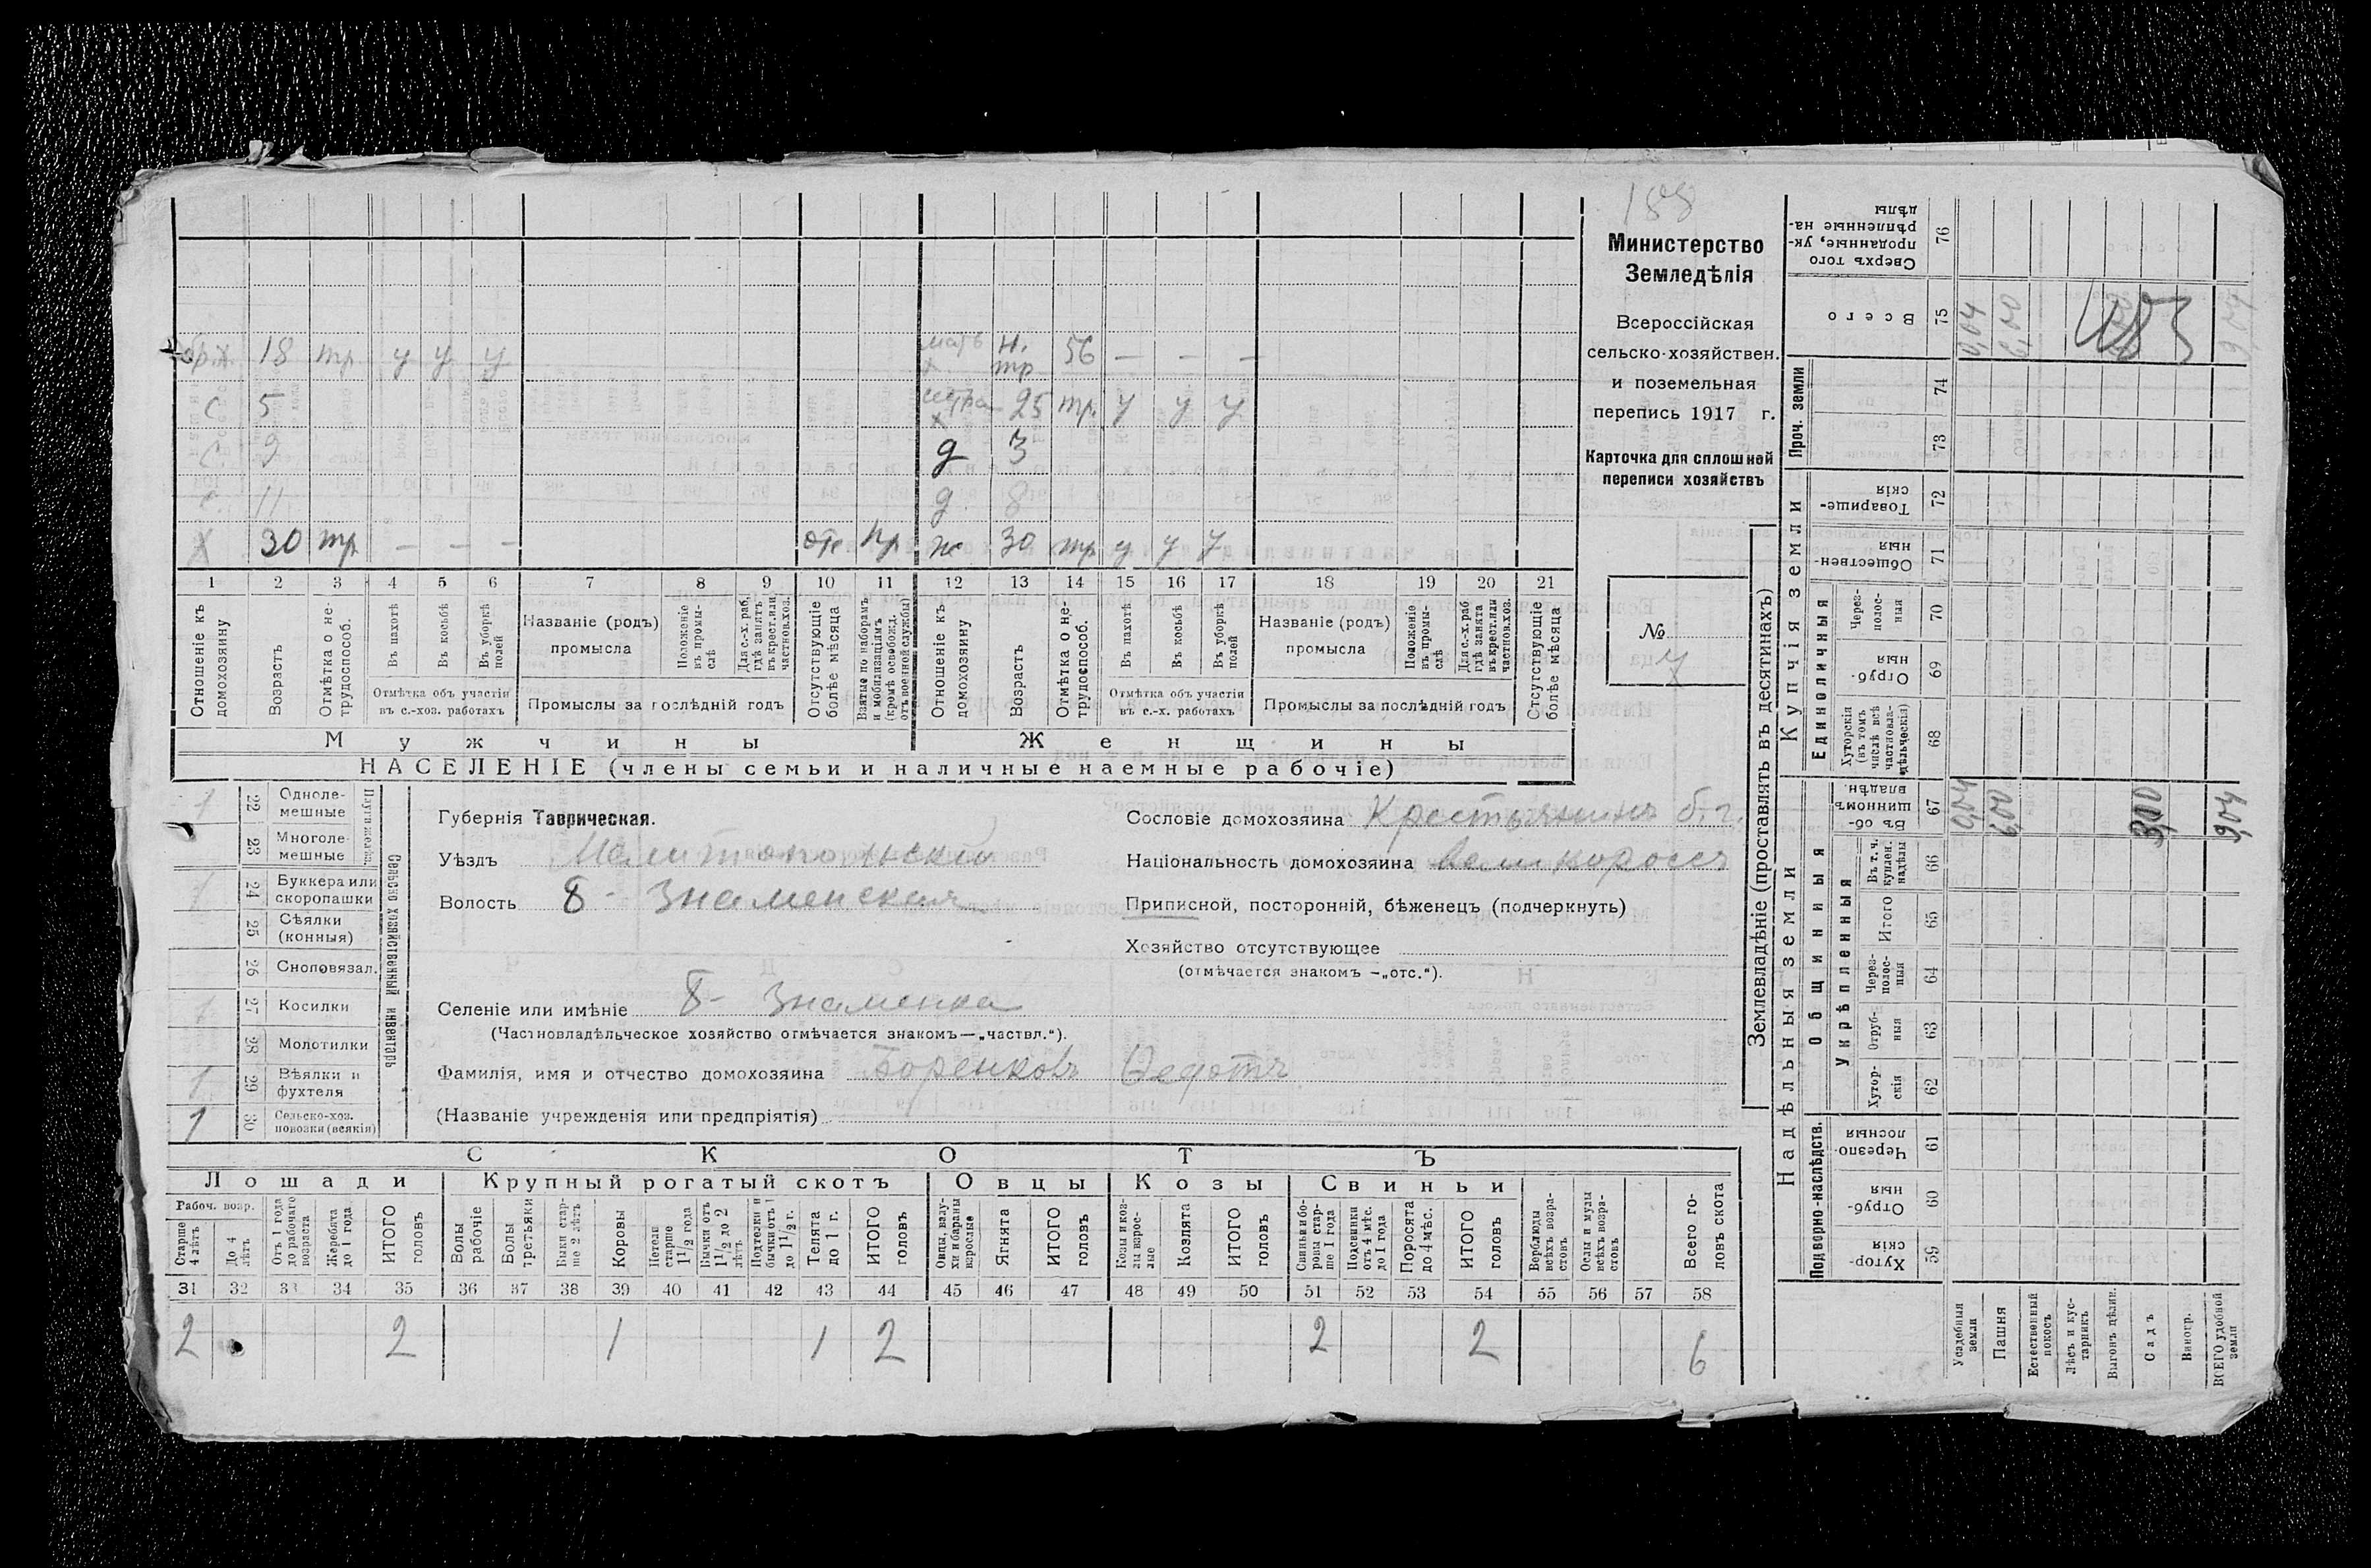 188
Министерство
Земледѣлія
Всероссійская
сельско-хозяйствен.
и поземельная
перепись 1917 г.
Карточка для сплошной
переписи хозяйствъ
№
4
бр.х. 18 тр у у у мать х н. тр 56 — — —
с. 5 сестра х 25 тр. у у у
с. 9 д 3
с. 11 д. 8
х 30 тр — — — отс пр ж 30 тр у у у
1 2 3 4 5 6 7 8 9 10 11 12 13 14 15 16 17 18 19 20 21
Отношеніе къ домохозяину
Возрастъ
Отмѣтка о не-трудоспособ.
Въ пахотѣ
Въ косьбѣ
Въ уборкѣ полей
Отмѣтка объ участіи въ с.-хоз. работахъ
Названіе (родъ) промысла
Положеніе въ промы-слѣ
Для с.-х. раб, гдѣ занятъ въ крест. или частнов. хоз.
Промыслы за послѣдній годъ
Отсутствующіе болѣе мѣсяца
Взятые по наборамъ и мобилизаціямъ (кромѣ освобожд. отъ военной службы)
Отношеніе къ домохозяину
Возрастъ
Отмѣтка о не-трудоспособ.
Въ пахотѣ
Въ косьбѣ
Въ уборкѣ полей
Отмѣтка объ участіи въ с.-х. работахъ
Названіе (родъ) промысла
Положеніе въ промы-слѣ
Для с.-х. раб гдѣ занята въ крест. или частнов. хоз.
Промыслы за послѣдній годъ
Отсутствующіе болѣе мѣсяца
Мужчины Женщины
НАСЕЛЕНІЕ (члены семьи и наличные наемные рабочіе)
1 22 Одноле-мешные
23 Многоле-мешные
Плуги желѣз.
1 24 Буккера или скоропашки
25 Сѣялки (конныя)
26 Сноповязал.
1 27 Косилки
28 Молотилки
1 29 Вѣялки и фухтеля
1 30 Сельско-хоз. повозки (всякія)
Сельско хозяйственный инвентарь
Губернія Таврическая.
Уѣздъ Мелитопольскій
Волость Б - Знаменская
Селеніе или имѣніе Б- Знаменка
(Частновладѣльческое хозяйство отмѣчается знакомъ—„частвл.“).
Фамилія, имя и отчество домохозяина Боренковъ Ѳедотъ
(Названіе учрежденія или предпріятія)
Сословіе домохозяина Крестьянинъ б. г.
Національность домохозяина великороссъ
Приписной, посторонній, бѣженецъ (подчеркнуть)
Хозяйство отсутствующее
(отмѣчается знакомъ —„отс.“).
СКОТЪ
Лошади Крупный рогатый скотъ Овцы Козы Свиньи
Рабоч. возр.
Старше 4 лѣтъ
До 4 лѣтъ
Отъ 1 года до рабочаго возраста
Жеребята до 1 года
ИТОГО головъ
Волы рабочіе
Волы третьяки
Быки стар-ше 2 лѣтъ
Коровы
Нетели старше 1 1/2 года
Бычки отъ 1 1/2 до 2 лѣтъ
Подтелки и бычки отъ 1 до 1 1/2 г.
Телята до 1 г.
ИТОГО головъ
Овцы, валу-хи и бараны взрослые
Ягнята
ИТОГО головъ
Козы и коз-лы взрос-лые
Козлята
ИТОГО головъ
Свиньи и бо-ровы стар-ше 1 года
Подсвинки отъ 4 мѣс. до 1 года
Поросята до 4 мѣс.
ИТОГО головъ
Верблюды всѣхъ возра-стовъ
Ослы и мулы всѣхъ возра-стовъ
Всего го-ловъ скота
31 32 33 34 35 36 37 38 39 40 41 42 43 44 45 46 47 48 49 50 51 52 53 54 55 56 57 58
2 2 1 1 2 2 2 6
Землевладѣніе (проставлять въ десятинахъ)
Надѣльныя земли Купчія земли Проч. земли
Подворно-наслѣдств. Общинныя Единоличныя
Укрѣпленныя
Сверхъ того проданные, ук-рѣпленные на-дѣлы 76
Всего 75 0,04 6,00 9,04
185
74
73
Товарище-скія 72
Обществен-ныя 71
Через-полос-ныя 70
Отруб-ныя 69
Хуторскія (въ томъ числѣ всѣ частновла-дѣльческія) 68
Въ об-щинномъ владѣн. 67 0,04 6,00 3,00 9,04
Въ т. ч. куплен. надѣлы 66
Итого 65
Через-полос-ныя 64
Отруб-ныя 63
Хутор-скія 62
Черезпо-лосныя 61
Отруб-ныя 60
Хутор-скія 59
Усадебныя земли
Пашня
Естественный покосъ
Лѣсъ и кус-тарникъ
Выгонъ цѣлин.
Садъ
Виногр.
ВСЕГО удобной земли